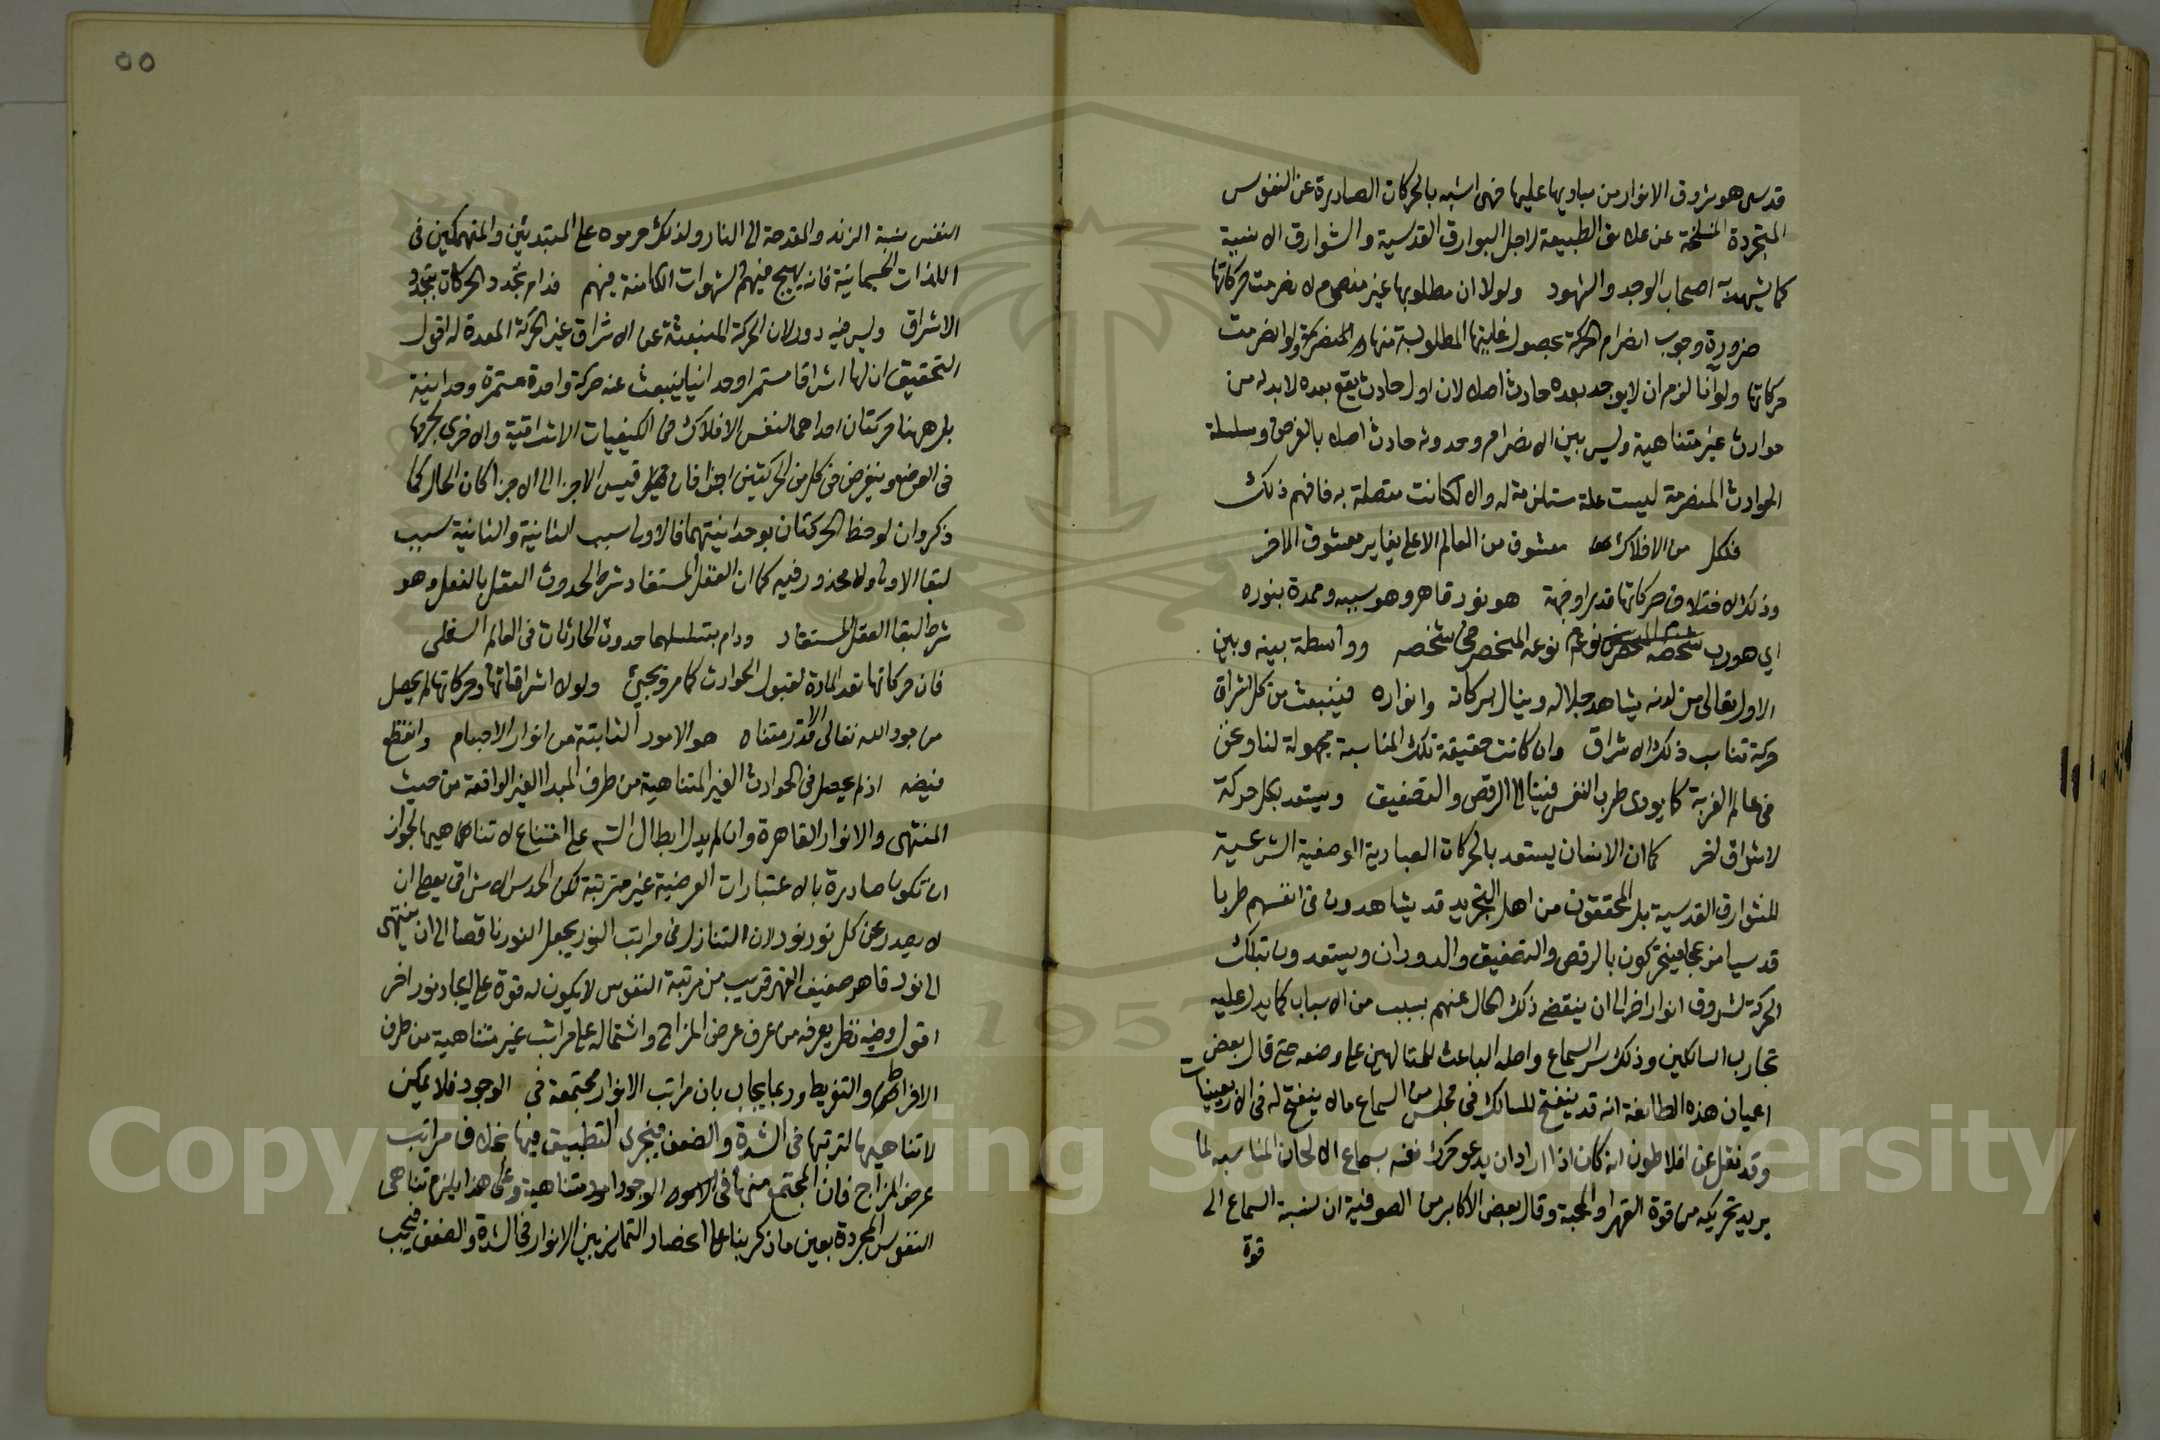 قدسي هو شروق الانوار من مباديها عليها فهي اشبه بالحركات الصادرة عن النفوس
المتجردة المنسلخة عن علائق الطبيعة لاجل البوارق القدسية والشوارق الانسية
كما يشهد به اصحاب الوجد والشهود ولولا ان مطلوبها غير منصرم لانصرمت حركاتها
ضرورة وجوب انصرام الحركة بحصول غايتها المطلوبة منها المنصرمة ولو انصرمت
حركاتها ولو انا لزم ان لا يوجد بعده حادث اصلا لان اول حادث يقع بعده لا بد له من
حوادث غير متناهية وليس بين الانصرام وحدوثه حادث اصلا بالفرض وسلسلة
الحوادث المنصرمة ليست علة مستلزمة له والا لكانت متصلة به فافهم ذلك
فلكل من الافلاك معشوق من العالم الاعلى يغاير معشوق الاخر
وذلك لاختلاف حركاتها قدرا وجهة هو نور قاهر وهو سببه وممده بنوره
اي هو رب نوعه المنحصر في شخصه وواسطة بينه وبين
الاول تعالى من لدنه يشاهد جلاله وينال بركاته وانواره فينبعث من كل اشراق
حركة تناسب ذلك الاشراق وان كانت حقيقة تلك المناسبة مجهولة لنا ونحن
في عالم الغربة كما يودى طرب النفس فينا الى الرقص والتصفيق ويستعد بكل حركة
لاشراق اخر كما ان الانسان يستعد بالحركات العبادية الوضعية الشرعية
للشوارق القدسية بل المحققون من اهل التجريد قد يشاهدون في انفسهم طربا
قدسيا مزعجا فيتحركون بالرقص والتصفيق والدوران ويستعدون بتلك
الحركة لشروق انوار اخر الى ان ينقضي ذلك الحال عنهم بسبب من الاسباب كما يدل عليه
تجارب السالكين وذلك سر السماع واصله الباعث للمتالهين على وضعه حتى قال بعض
اعيان هذه الطائفة انه قد ينفتح للسالك في مجلس من السماع ما لا ينفتح له في الاربعينات
وقد نقل عن افلاطون انه كان اذا اراد ان يدعو حرك نفسه بسماع الالحان المناسبة لما
يريد تحريكه من قوة القهر او المحبة وقال بعض الاكابر من الصوفية ان نسبة السماع الى
قوة
٥٥
النفس نسبة الزند والمقدحة الى النار ولذلك حرموه على المبتدئين والمنهمكين في
اللذات الجسمانية فانه يهيج فيهم الشهوات الكامنة فيهم فدام تجدد الحركات بتجدد
الاشراق وليس فيه دور لان الحركة المنبعثة عن الاشراق غير الحركة المعدة له اقول
التحقيق ان لها اشراقا مستمرا وحدانيا ينبعث عنه حركة واحدة مستمرة وحدانية
بل ههنا حركتان احداهما لنفس الافلاك في الكيفيات الاشراقية والاخرى لجرمها
في الوضع وينفرض في كل من الحركتين اجزا فان قيس الاجزا الى الاجزا كان الحال كما
ذكر وان لوحظ الحركتان بوحدانيتهما فالاولى سبب الثانية والثانية سبب
لبقا الاولى ولا محذور فيه كما ان العقل المستفاد شرط لحدوث العقل بالفعل وهو
شرط لبقا العقل المستفاد ودام بتسلسلهما حدوث الحادثات في العالم السفلي
فان حركاتها تعد المادة لقبول الحوادث كما مر ويجيئ ولولا اشراقاتها وحركاتها لم يحصل
من جود الله تعالى الا قدر متناه هو الامور الثابتة من انوار الاجسام وانقطع
فيضه اذ لم يحصل في الحوادث الغير المتناهية من طرف المبدا الغير الواقعة من حيث
المنتهى والانوار القاهرة وان لم يدل ابطال التس على امتناع لا تناهيها لجواز
ان تكون صادرة بالاعتبارات العرضية غير مترتبة لكن الحدس الاشراقي يعطي ان
لا يصدر عن كل نور نور لان التنازل في مراتب النور يجعل النور ناقصا الى ان ينتهى
الى نور قاهر ضعيف القهر قريب من مرتبة النفوس لا يكون له قوة على ايجاد نور اخر
اقول وفيه نظر يعرفه من عرف عرض المزاج واشتماله على مراتب غير متناهية من طرف
الافراط والتفريط وربما يجاب بان مراتب الانوار مجتمعة في الوجود فلا يمكن
لا تناهيها لترتبها في الشدة والضعف فيجري التطبيق فيها بخلاف مراتب
عرض المزاج فان المجتمع منها في الوجود امور متناهية وعلى هذا يلزم تناهى
النفوس المجردة بعين ما ذكر بناء على انحصار التمايز بين الانوار في الشدة والضعف فيجب